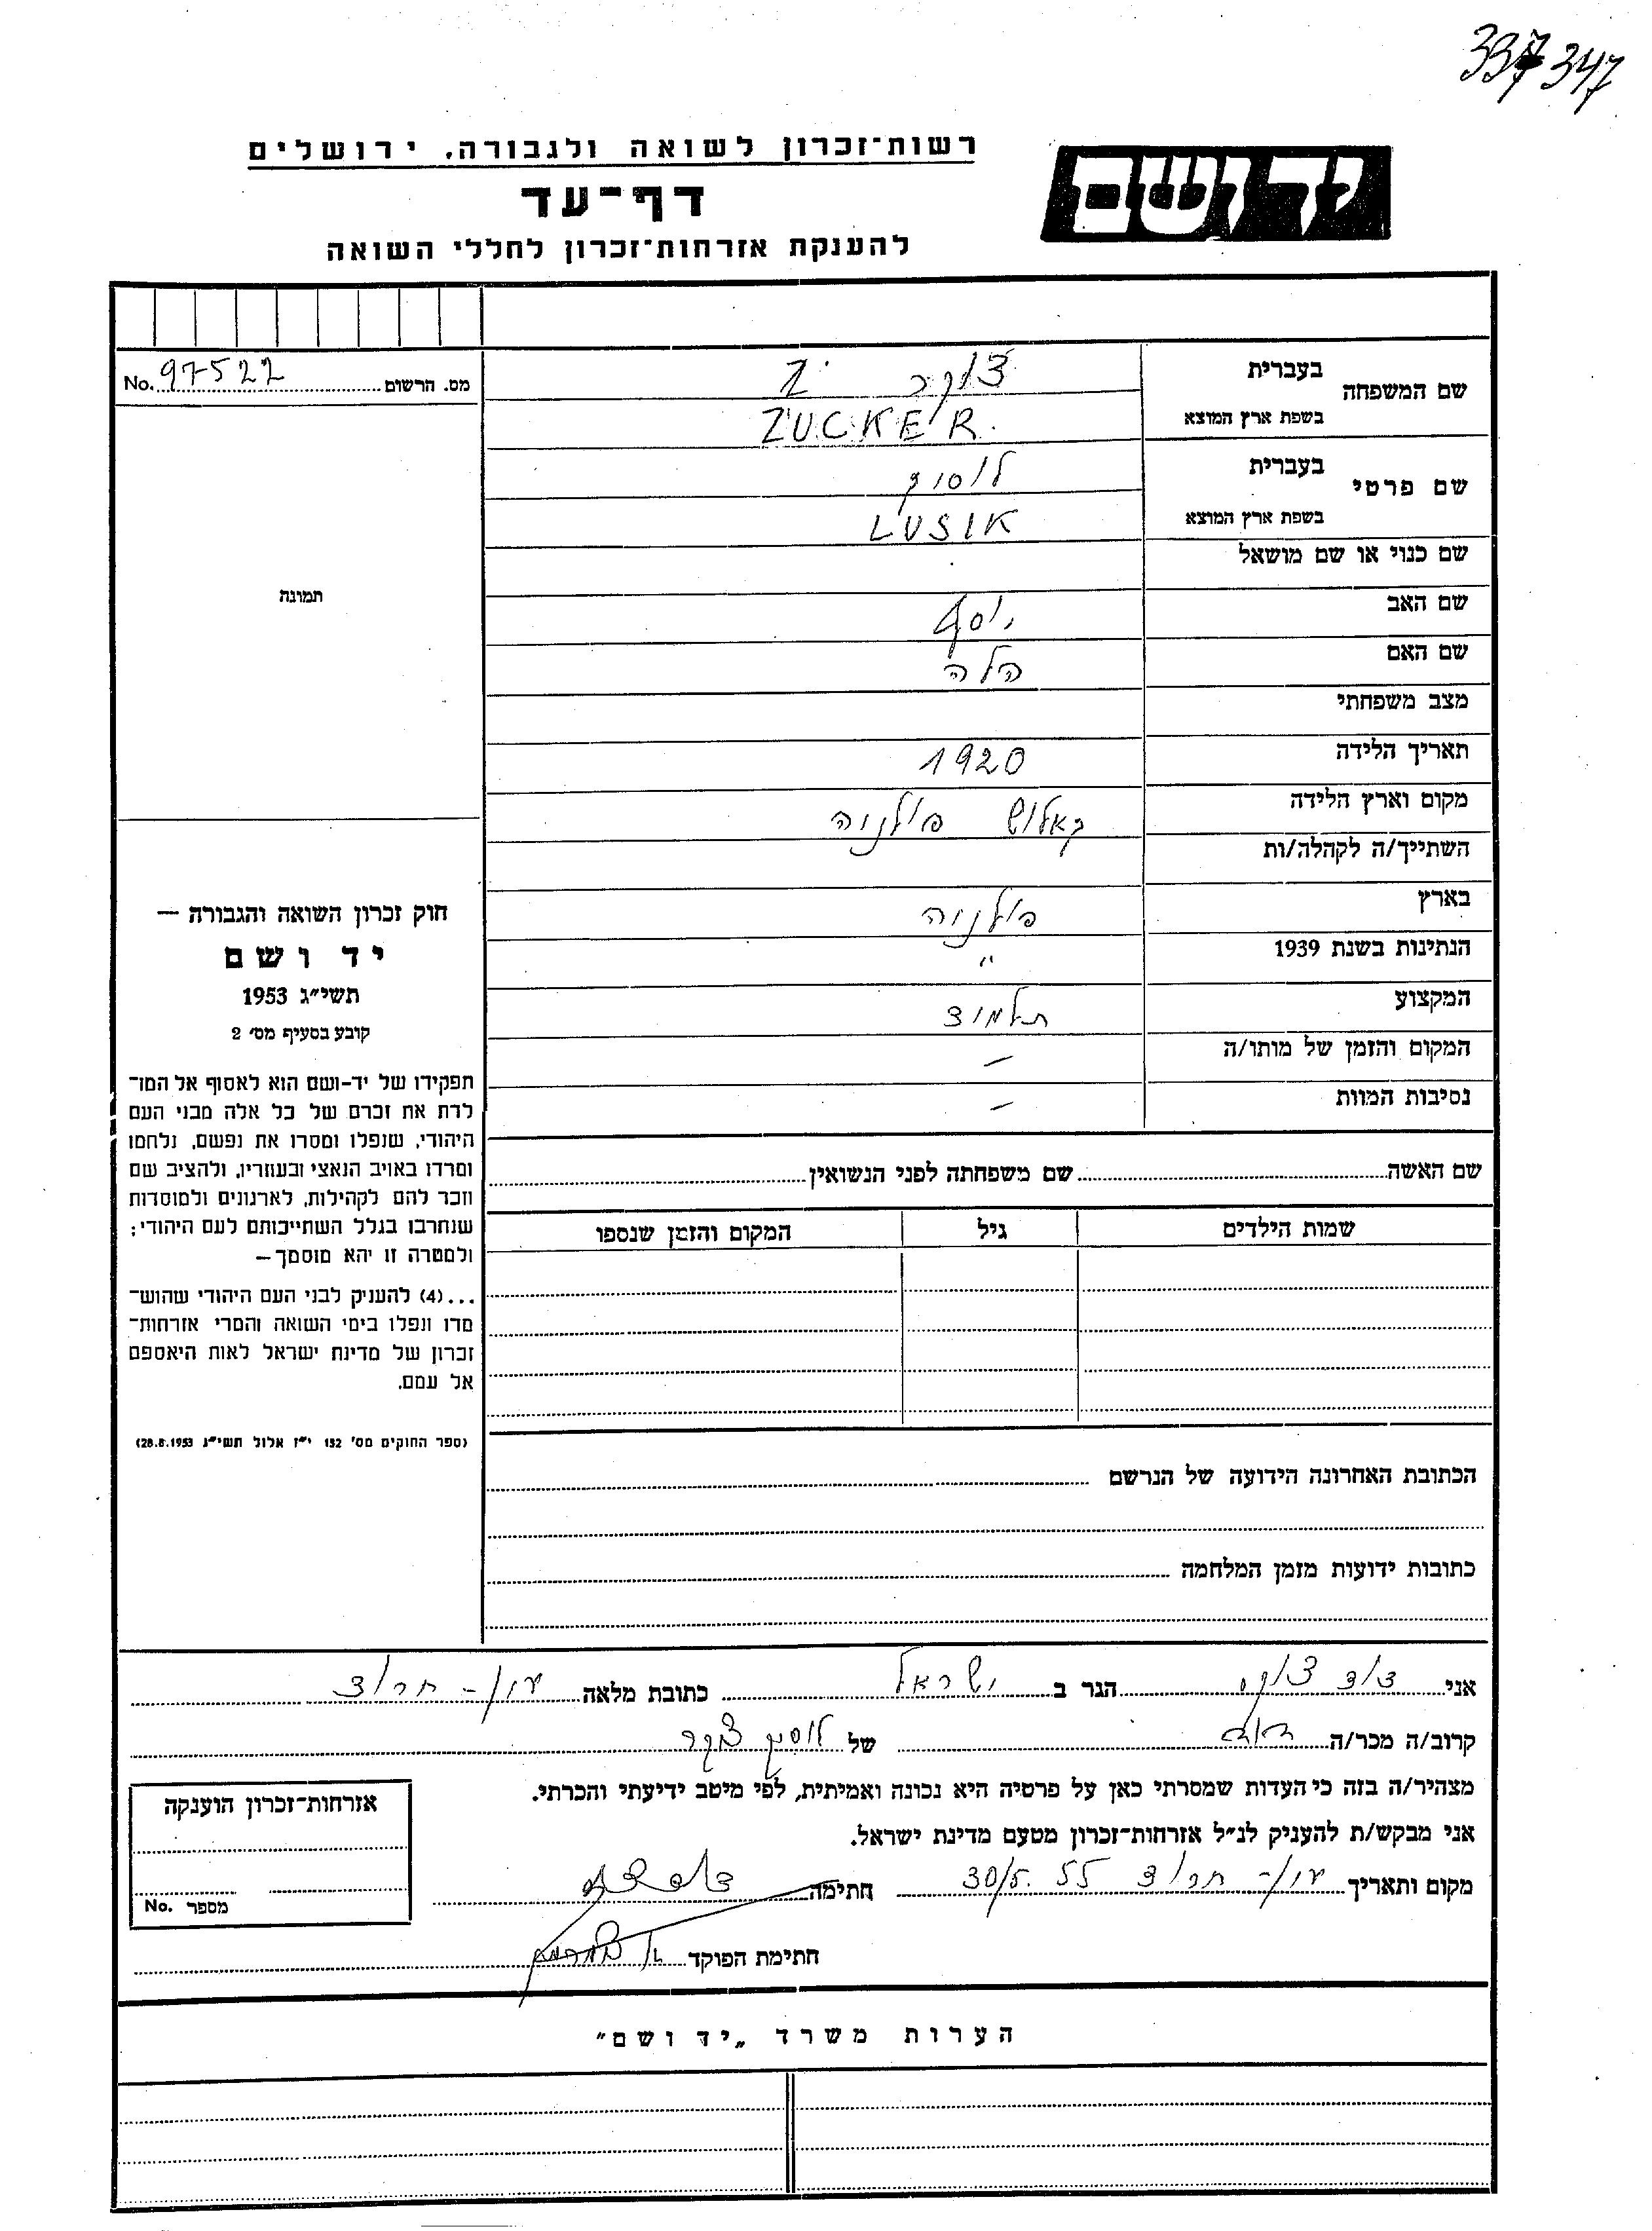 337 347
רשות־זכרון לשואה ולגבורה, ירושלים
יד ושם
דף־עד
להענקת אזרחות־זכרון לחללי השואה
מס. הרשום 97522 No.
שם המשפחה
בעברית צוקר
בשפת ארץ המוצא ZUCKER
שם פרטי
בעברית לוסיק
בשפת ארץ המוצא LUSIK
שם כנוי או שם מושאל
שם האב יוסף
שם האם הלה
מצב משפחתי
תאריך הלידה 1920
מקום וארץ הלידה קאלוש פולניה
השתייך/ה לקהלה/ות
בארץ פולניה
הנתינות בשנת 1939 "
המקצוע תלמיד
המקום והזמן של מותו/ה –
נסיבות המוות –
תמונה
חוק זכרון השואה והגבורה —
יד ושם
תשי״ג 1953
קובע בסעיף מס׳ 2
תפקידו של יד-ושם הוא לאסוף אל המו־
לדת את זכרם של כל אלה מבני העם
היהודי, שנפלו ומסרו את נפשם, נלחמו
ומרדו באויב הנאצי ובעוזריו, ולהציב שם
וזכר להם לקהילות, לארגונים ולמוסדות
שנחרבו בגלל השתייכותם לעם היהודי;
ולמטרה זו יהא מוסמך —
...(4) להעניק לבני העם היהודי שהוש־
מדו ונפלו בימי השואה והמרי אזרחות־
זכרון של מדינת ישראל לאות היאספם
אל עמם.
(ספר החוקים מס׳ 132 י״ז אלול תשי״ג 28.8.1953)
שם האשה שם משפחתה לפני הנשואין
שמות הילדים גיל המקום והזמן שנספו
הכתובת האחרונה הידועה של הנרשם
כתובות ידועות מזמן המלחמה
אני דוד צוקר הגר ב ישראל כתובת מלאה עין-חרוד
קרוב/ה מכר/ה של לוסיק צוקר
מצהיר/ה בזה כי העדות שמסרתי כאן על פרטיה היא נכונה ואמיתית, לפי מיטב ידיעתי והכרתי.
אני מבקש/ת להעניק לנ״ל אזרחות־זכרון מטעם מדינת ישראל.
מקום ותאריך עין-חרוד 30/5. 55 חתימה
חתימת הפוקד
אזרחות־זכרון הוענקה
מספר No.
הערות משרד „יד ושם״